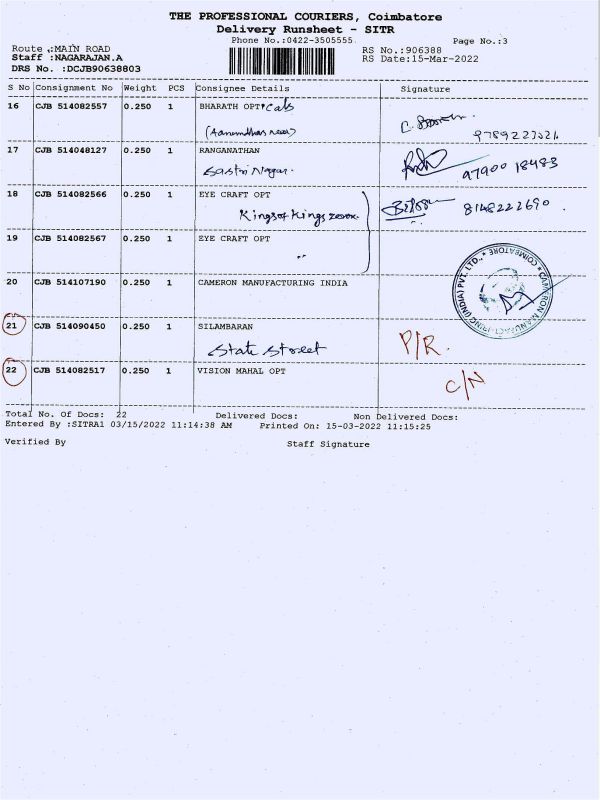 THE PROFESSIONAL COURIERS, Coimbatore
Delivery Runsheet - SITR
Phone No.:0422-3505555 Page No.:3
Route :MAIN ROAD RS No.:906388
Staff :NAGARAJAN.A RS Date:15-Mar-2022
DRS No. :DCJB90638803
S No Consignment No Weight PCS Consignee Details Signature
16 CJB 514082557 0.250 1 BHARATH OPTICals
9789223521
17 CJB 514048127 0.250 1 RANGANATHAN
Sastri Nagar. 97900 18483
18 CJB 514082566 0.250 1 EYE CRAFT OPT
Kings of Kings xerox 8148222690
19 CJB 514082567 0.250 1 EYE CRAFT OPT
"
20 CJB 514107190 0.250 1 CAMERON MANUFACTURING INDIA
CAMERON MANUFACTURING (INDIA) PVT. LTD., * COIMBATORE *
21 CJB 514090450 0.250 1 SILAMBARAN
State Street P/R.
22 CJB 514082517 0.250 1 VISION MAHAL OPT
C/N
Total No. Of Docs: 22 Delivered Docs: Non Delivered Docs:
Entered By :SITRA1 03/15/2022 11:14:38 AM Printed On: 15-03-2022 11:15:25
Verified By Staff Signature